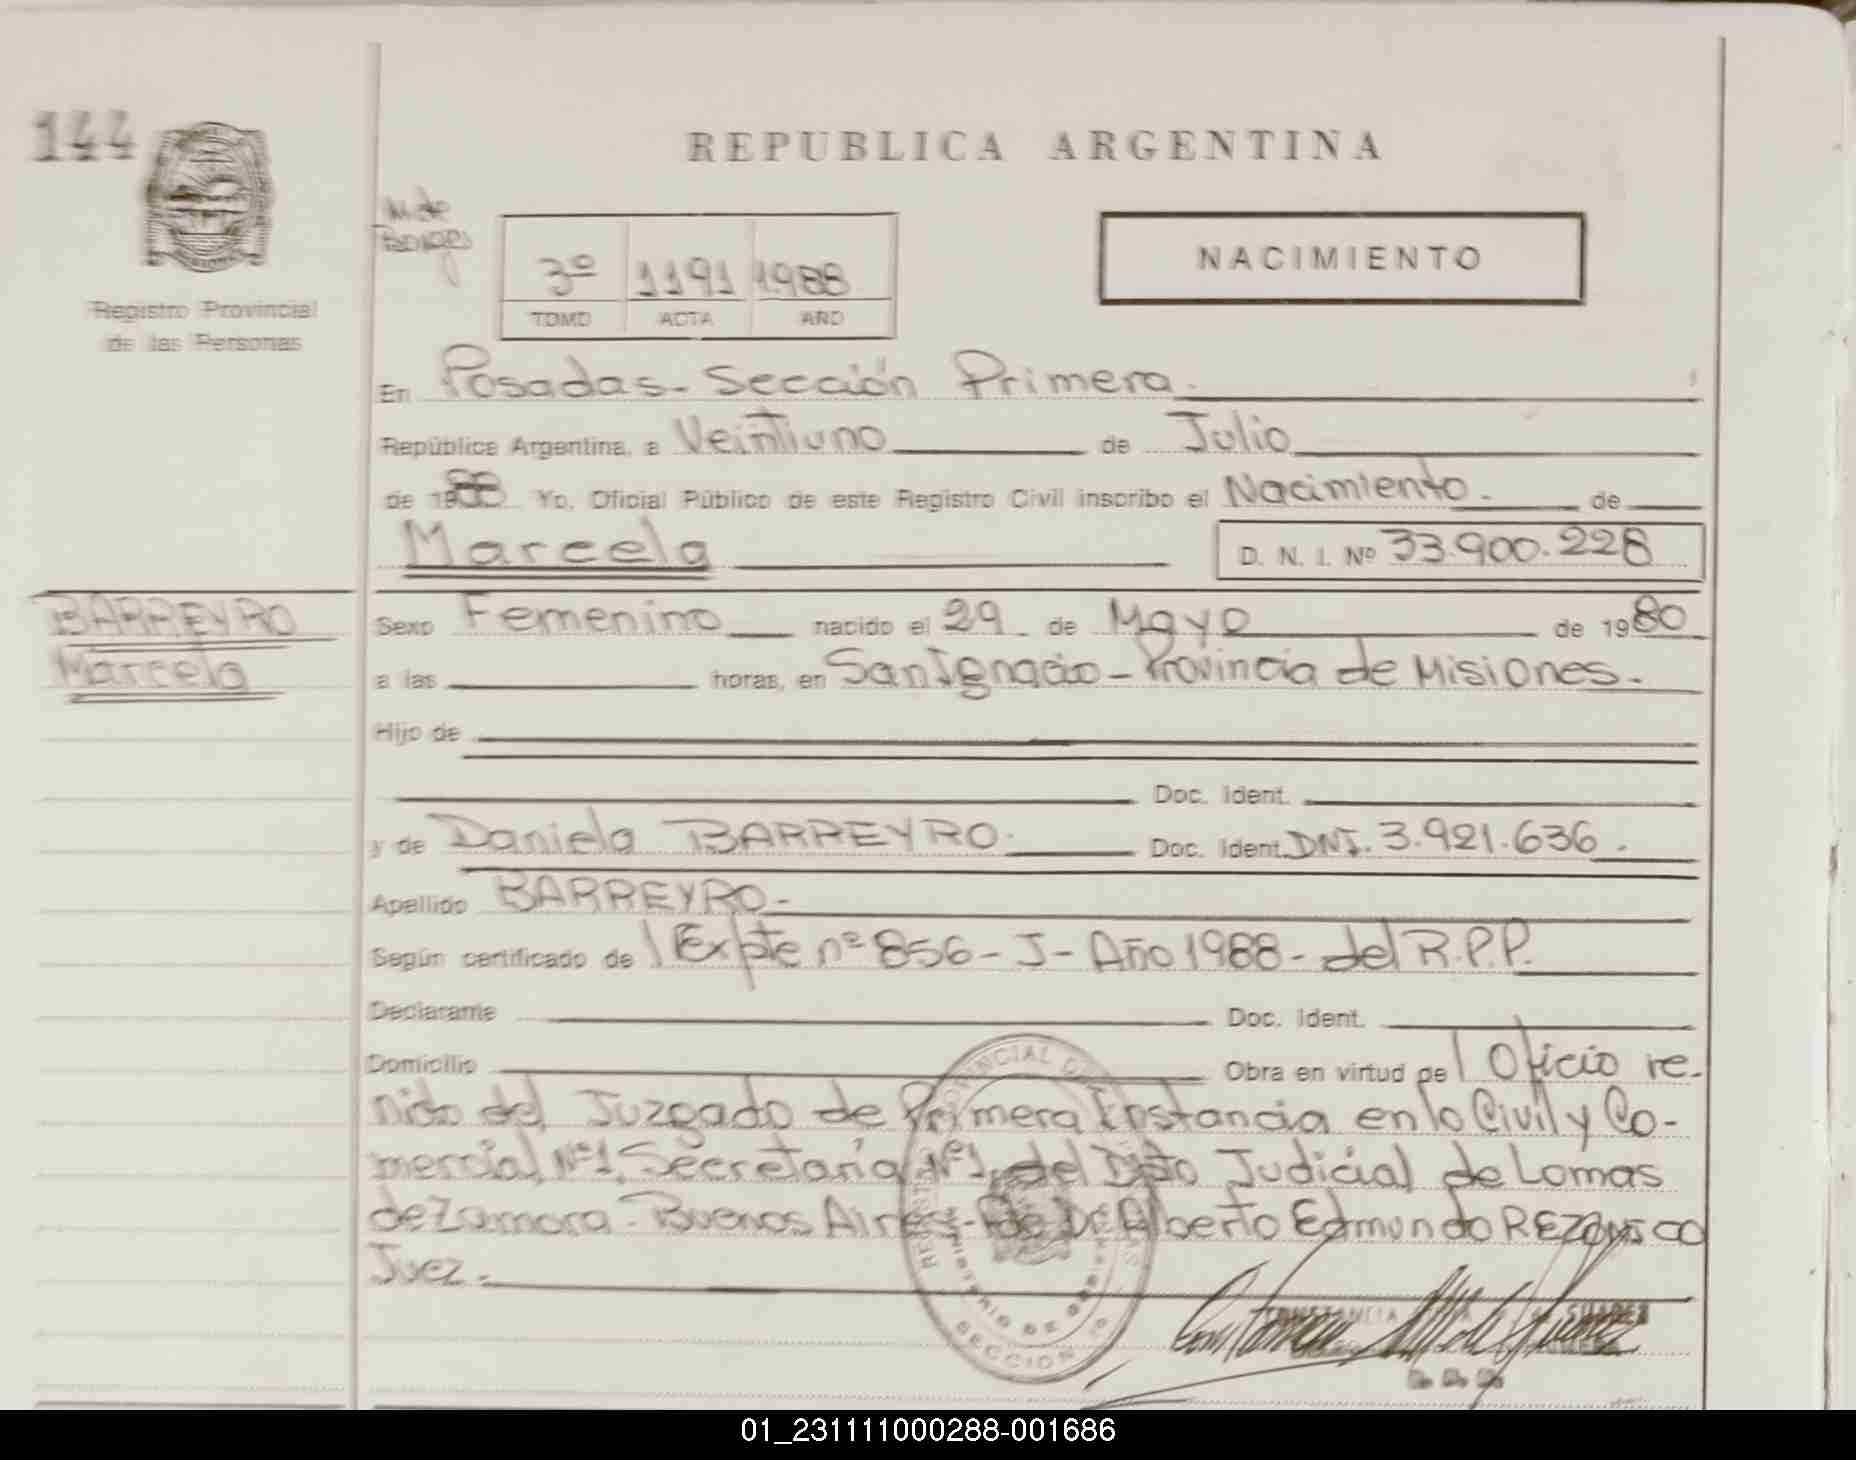 144
REPUBLICA ARGENTINA
Registro Provincial
de las Personas
M. de
3º 1191 1988
TOMO ACTA AÑO
NACIMIENTO
En Posadas - Sección Primera.
República Argentina, a Veintiuno de Julio
de 1988 Yo, Oficial Público de este Registro Civil inscribo el Nacimiento. de
Marcela D. N. I. Nº 33.900.228
BARREYRO
Marcela
Sexo Femenino nacido el 29 de Mayo de 1980
a las horas, en San Ignacio - Provincia de Misiones.
Hijo de
Doc. Ident.
y de Daniela BARREYRO. Doc. Ident. DNI. 3.921.636.
Apellido BARREYRO.-
Según certificado de Expte nº 856 - J - Año 1988 - del R.P.P.
Declarante Doc. Ident.
Domicilio Obra en virtud de Oficio re-
nido del Juzgado de Primera Instancia en lo Civil y Co-
mercial Nº1, Secretaría Nº1, del Dpto Judicial de Lomas
de Zamora - Buenos Aires - Fdo Dr. Alberto Edmundo REZONICO
Juez.-
CONSTANCIA SUAREZ
SECCION
01_231111000288-001686